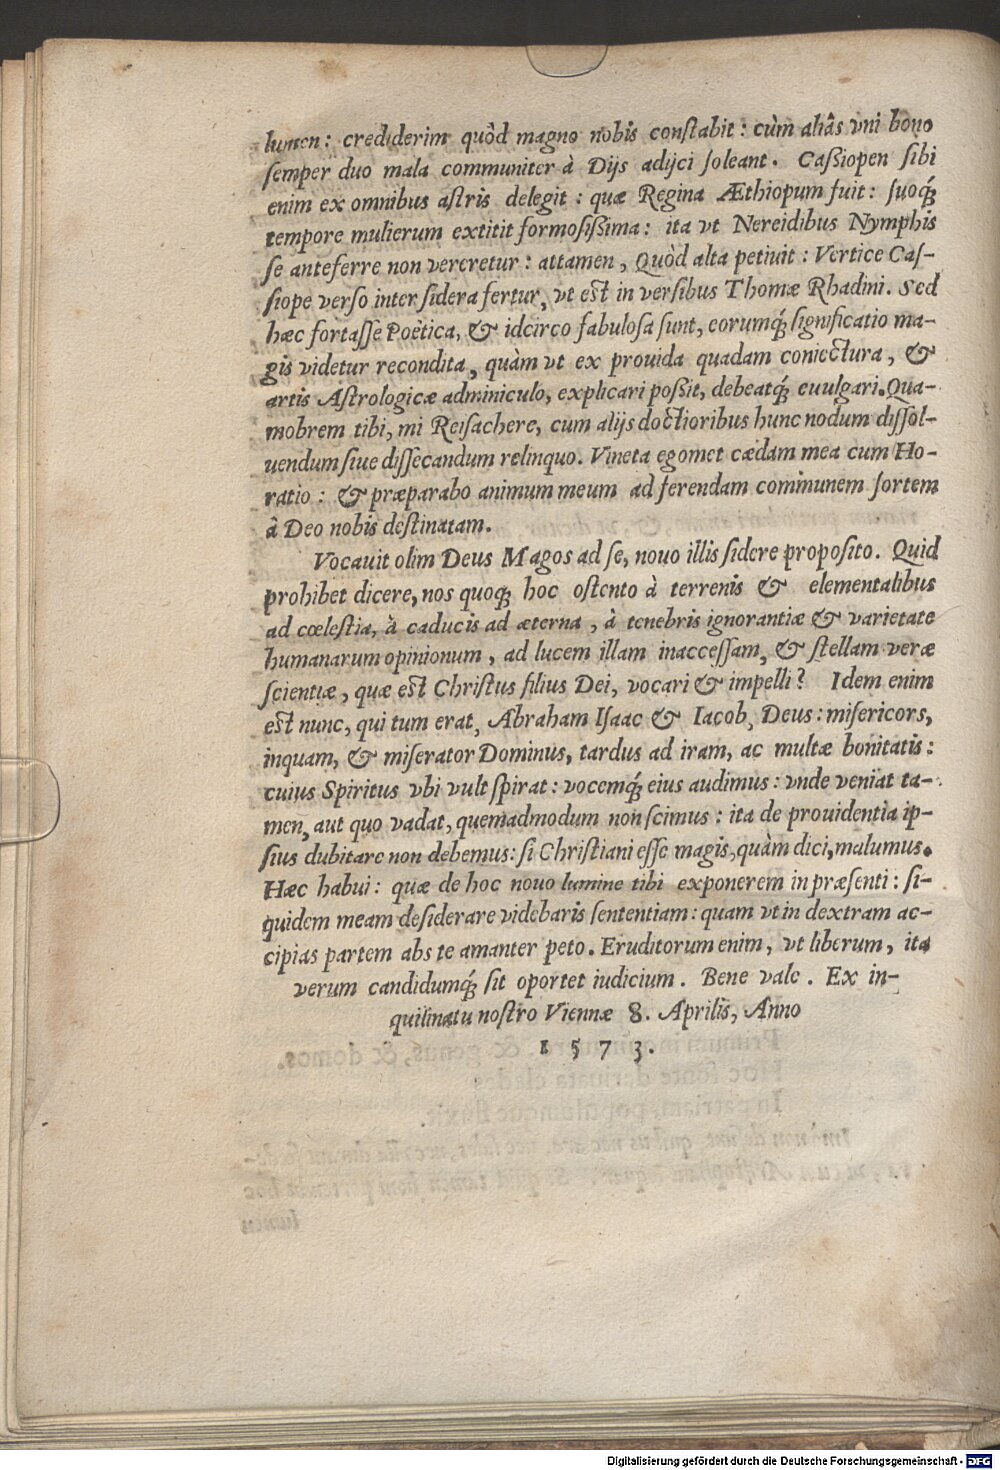 lumen: crediderim quòd magno nobis constabit: cùm aliâs vni bono
semper duo mala communiter à Dijs adijci soleant. Caßiopen sibi
enim ex omnibus astris delegit: quæ Regina Æthiopum fuit: suoq́;
tempore mulierum extitit formosißima: ita vt Nereidibus Nymphis
se anteferre non vereretur: attamen, Quòd alta petiuit: Vertice Cas-
siope verso inter sidera fertur, vt est in versibus Thomæ Rhadini. Sed
hæc fortasse Poëtica, & idcirco fabulosa sunt, eorumq́; significatio ma-
gis videtur recondita, quàm vt ex prouida quadam coniectura, &
artis Astrologicæ adminiculo, explicari poßit, debeatq́; euulgari. Qua-
mobrem tibi, mi Reisachere, cum alijs doctioribus hunc nodum dissol-
uendum siue dissecandum relinquo. Vineta egomet cædam mea cum Ho-
ratio: & præparabo animum meum ad ferendam communem sortem
à Deo nobis destinatam.
Vocauit olim Deus Magos ad se, nouo illis sidere proposito. Quid
prohibet dicere, nos quoq; hoc ostento à terrenis & elementalibus
ad cœlestia, à caducis ad æterna, à tenebris ignorantiæ & varietate
humanarum opinionum, ad lucem illam inaccessam, & stellam veræ
scientiæ, quæ est Christus filius Dei, vocari & impelli? Idem enim
est nunc, qui tum erat, Abraham Isaac & Iacob, Deus: misericors,
inquam, & miserator Dominus, tardus ad iram, ac multæ bonitatis:
cuius Spiritus vbi vult spirat: vocemq́; eius audimus: vnde veniat ta-
men, aut quo vadat, quemadmodum non scimus: ita de prouidentia ip-
sius dubitare non debemus: si Christiani esse magis, quàm dici, malumus.
Hæc habui: quæ de hoc nouo lumine tibi exponerem in præsenti: si-
quidem meam desiderare videbaris sententiam: quam vt in dextram ac-
cipias partem abs te amanter peto. Eruditorum enim, vt liberum, ita
verum candidumq́; sit oportet iudicium. Bene vale. Ex in-
quilinatu nostro Viennæ 8. Aprilis, Anno
1 5 7 3.
Digitalisierung gefördert durch die Deutsche Forschungsgemeinschaft - DFG